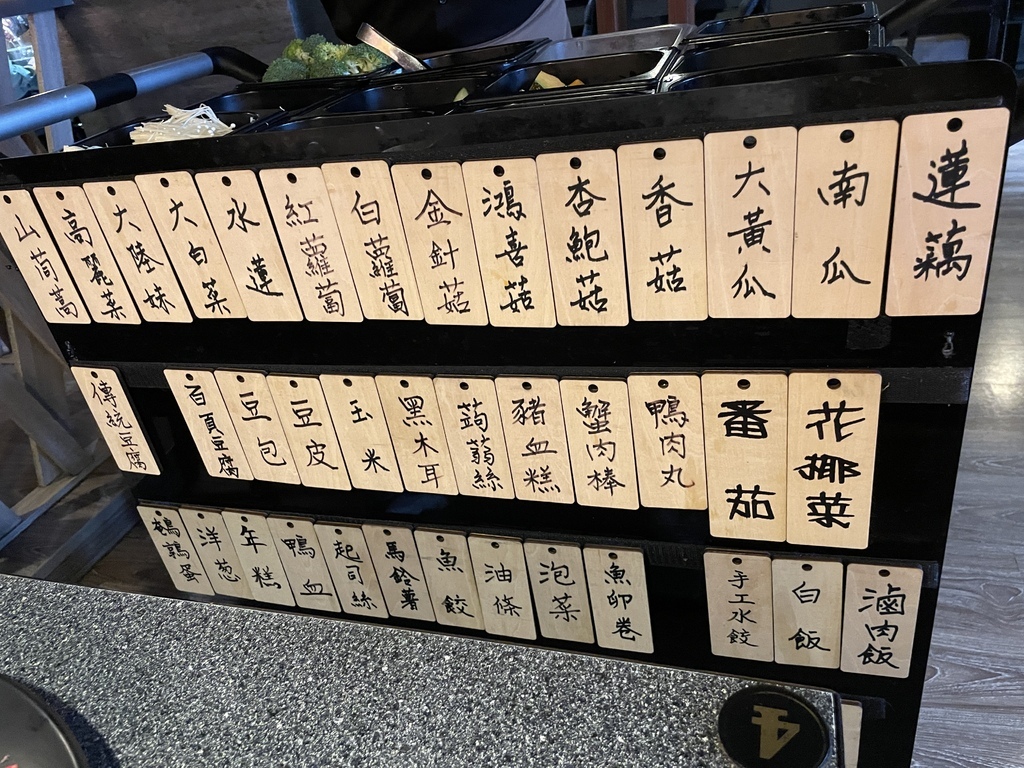 山茼蒿
高麗菜
大陸妹
大白菜
水蓮
紅蘿蔔
白蘿蔔
金針菇
鴻喜菇
杏鮑菇
香菇
大黃瓜
南瓜
蓮藕
傳統豆腐
百頁豆腐
豆包
豆皮
玉米
黑木耳
蒟蒻絲
豬血糕
蟹肉棒
鴨肉丸
番茄
花椰菜
鵪鶉蛋
洋蔥
年糕
鴨血
起司絲
馬鈴薯
魚餃
油條
泡菜
魚卵卷
手工水餃
白飯
滷肉飯
4